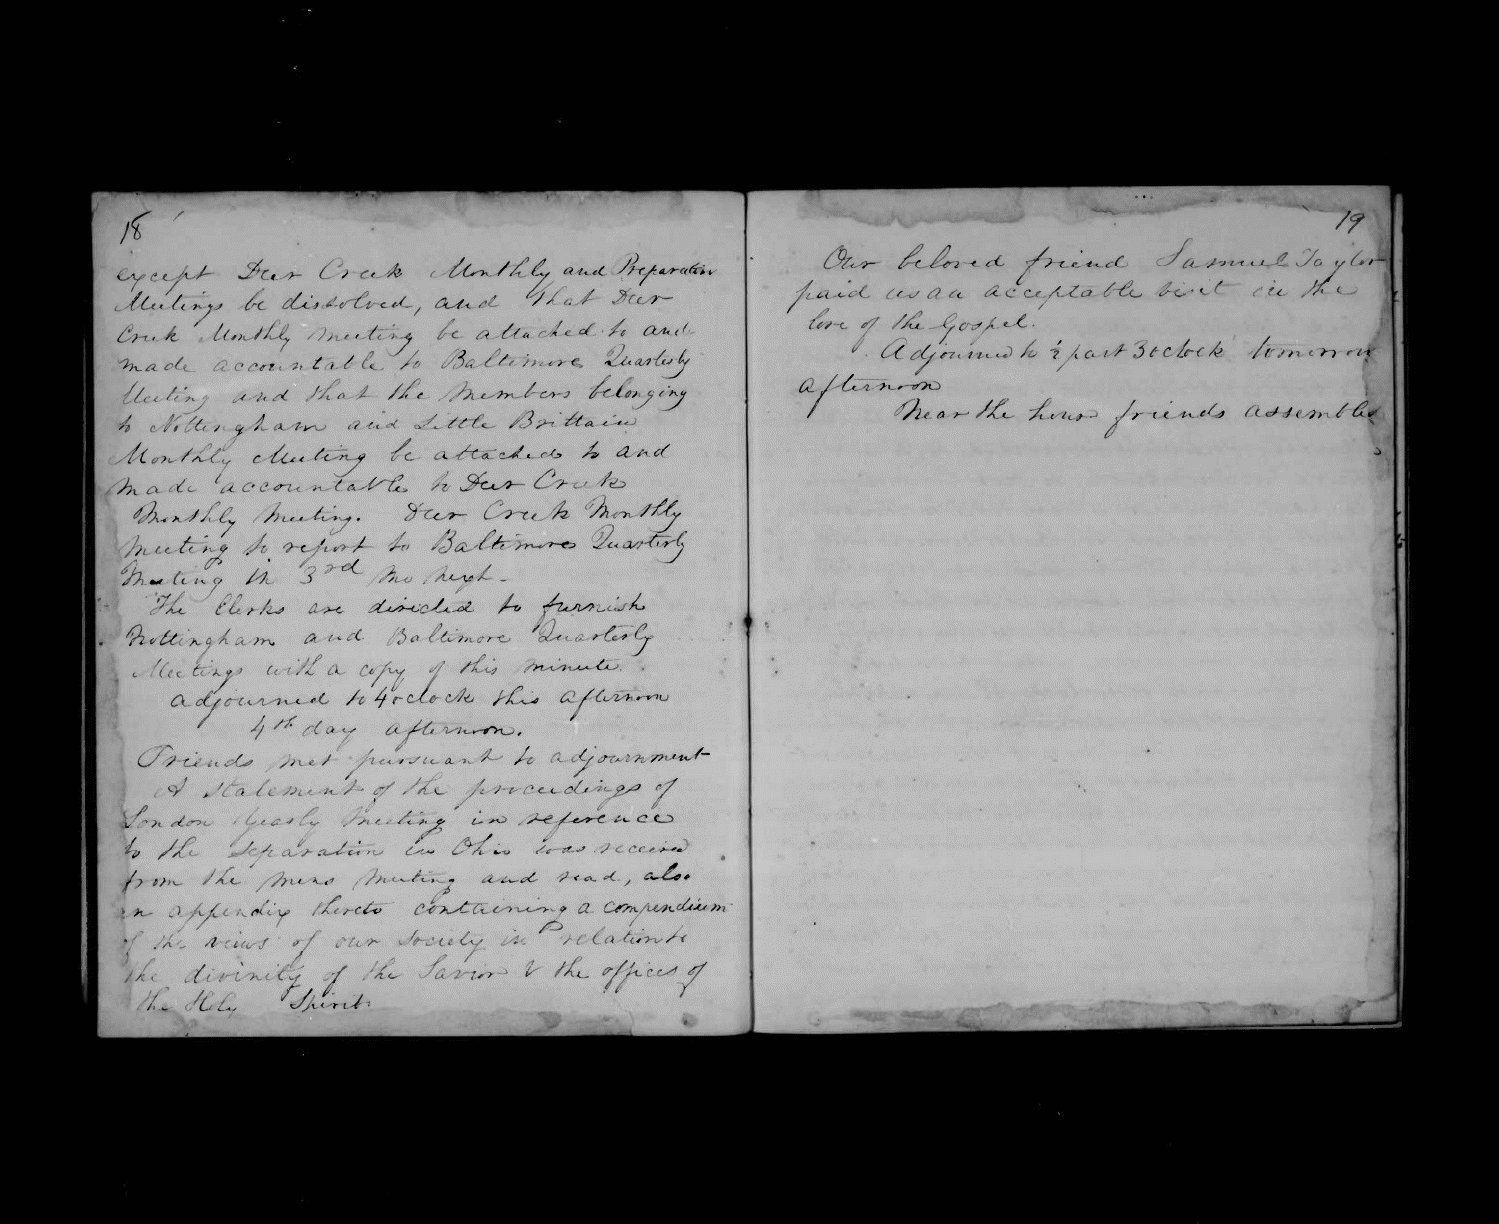 18
except Deer Creek Monthly and Preparative
Meetings be dissolved, and that Deer
Creek Monthly Meeting be attached to and
made accountable to Baltimore Quarterly
Meeting and that the members belonging
to Nottingham and Little Brittain
Monthly Meeting be attached to and
made accountable to Deer Creek
Monthly Meeting. Deer Creek Monthly
Meeting to report to Baltimore Quarterly
Meeting in 3rd mo next-
The Clerks are directed to furnish
Nottingham and Baltimore Quarterly
Meetings with a copy of this minute
adjourned to 4 oclock this afternoon
4th day afternoon.
Friends met pursuant to adjournment
A statement of the proceedings of
London Yearly Meeting in reference
to the separation in Ohio was received
from the mens meeting and read, also
an appendix thereto containing a compendium
of the views of our Society in relation to
the divinity of the Savior & the offices of
the Holy Spirit.
19
Our beloved friend Samuel Taylor
paid us an acceptable visit in the
love of the Gospel.
Adjourned to ½ past 3 oclock tomorrow
afternoon
Near the hour friends assembled